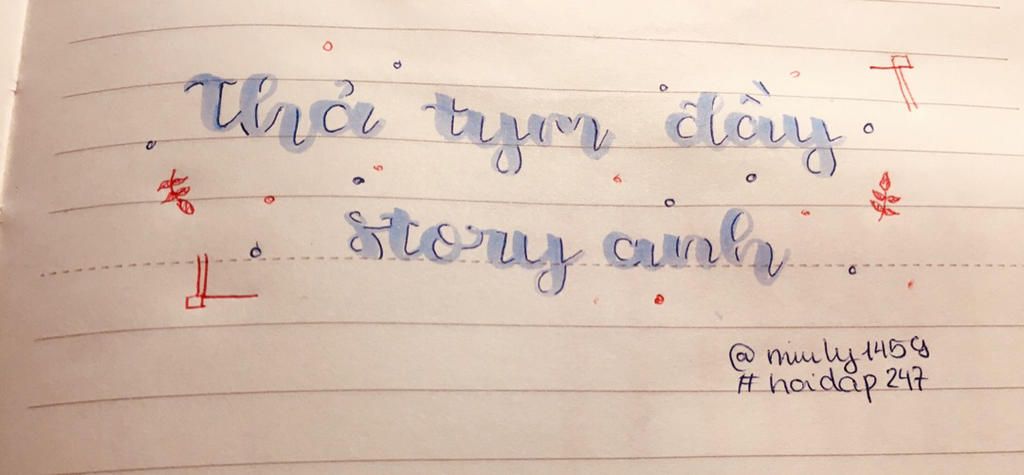 Thả tym đầy
story anh
@miuly1459
#hoidap247